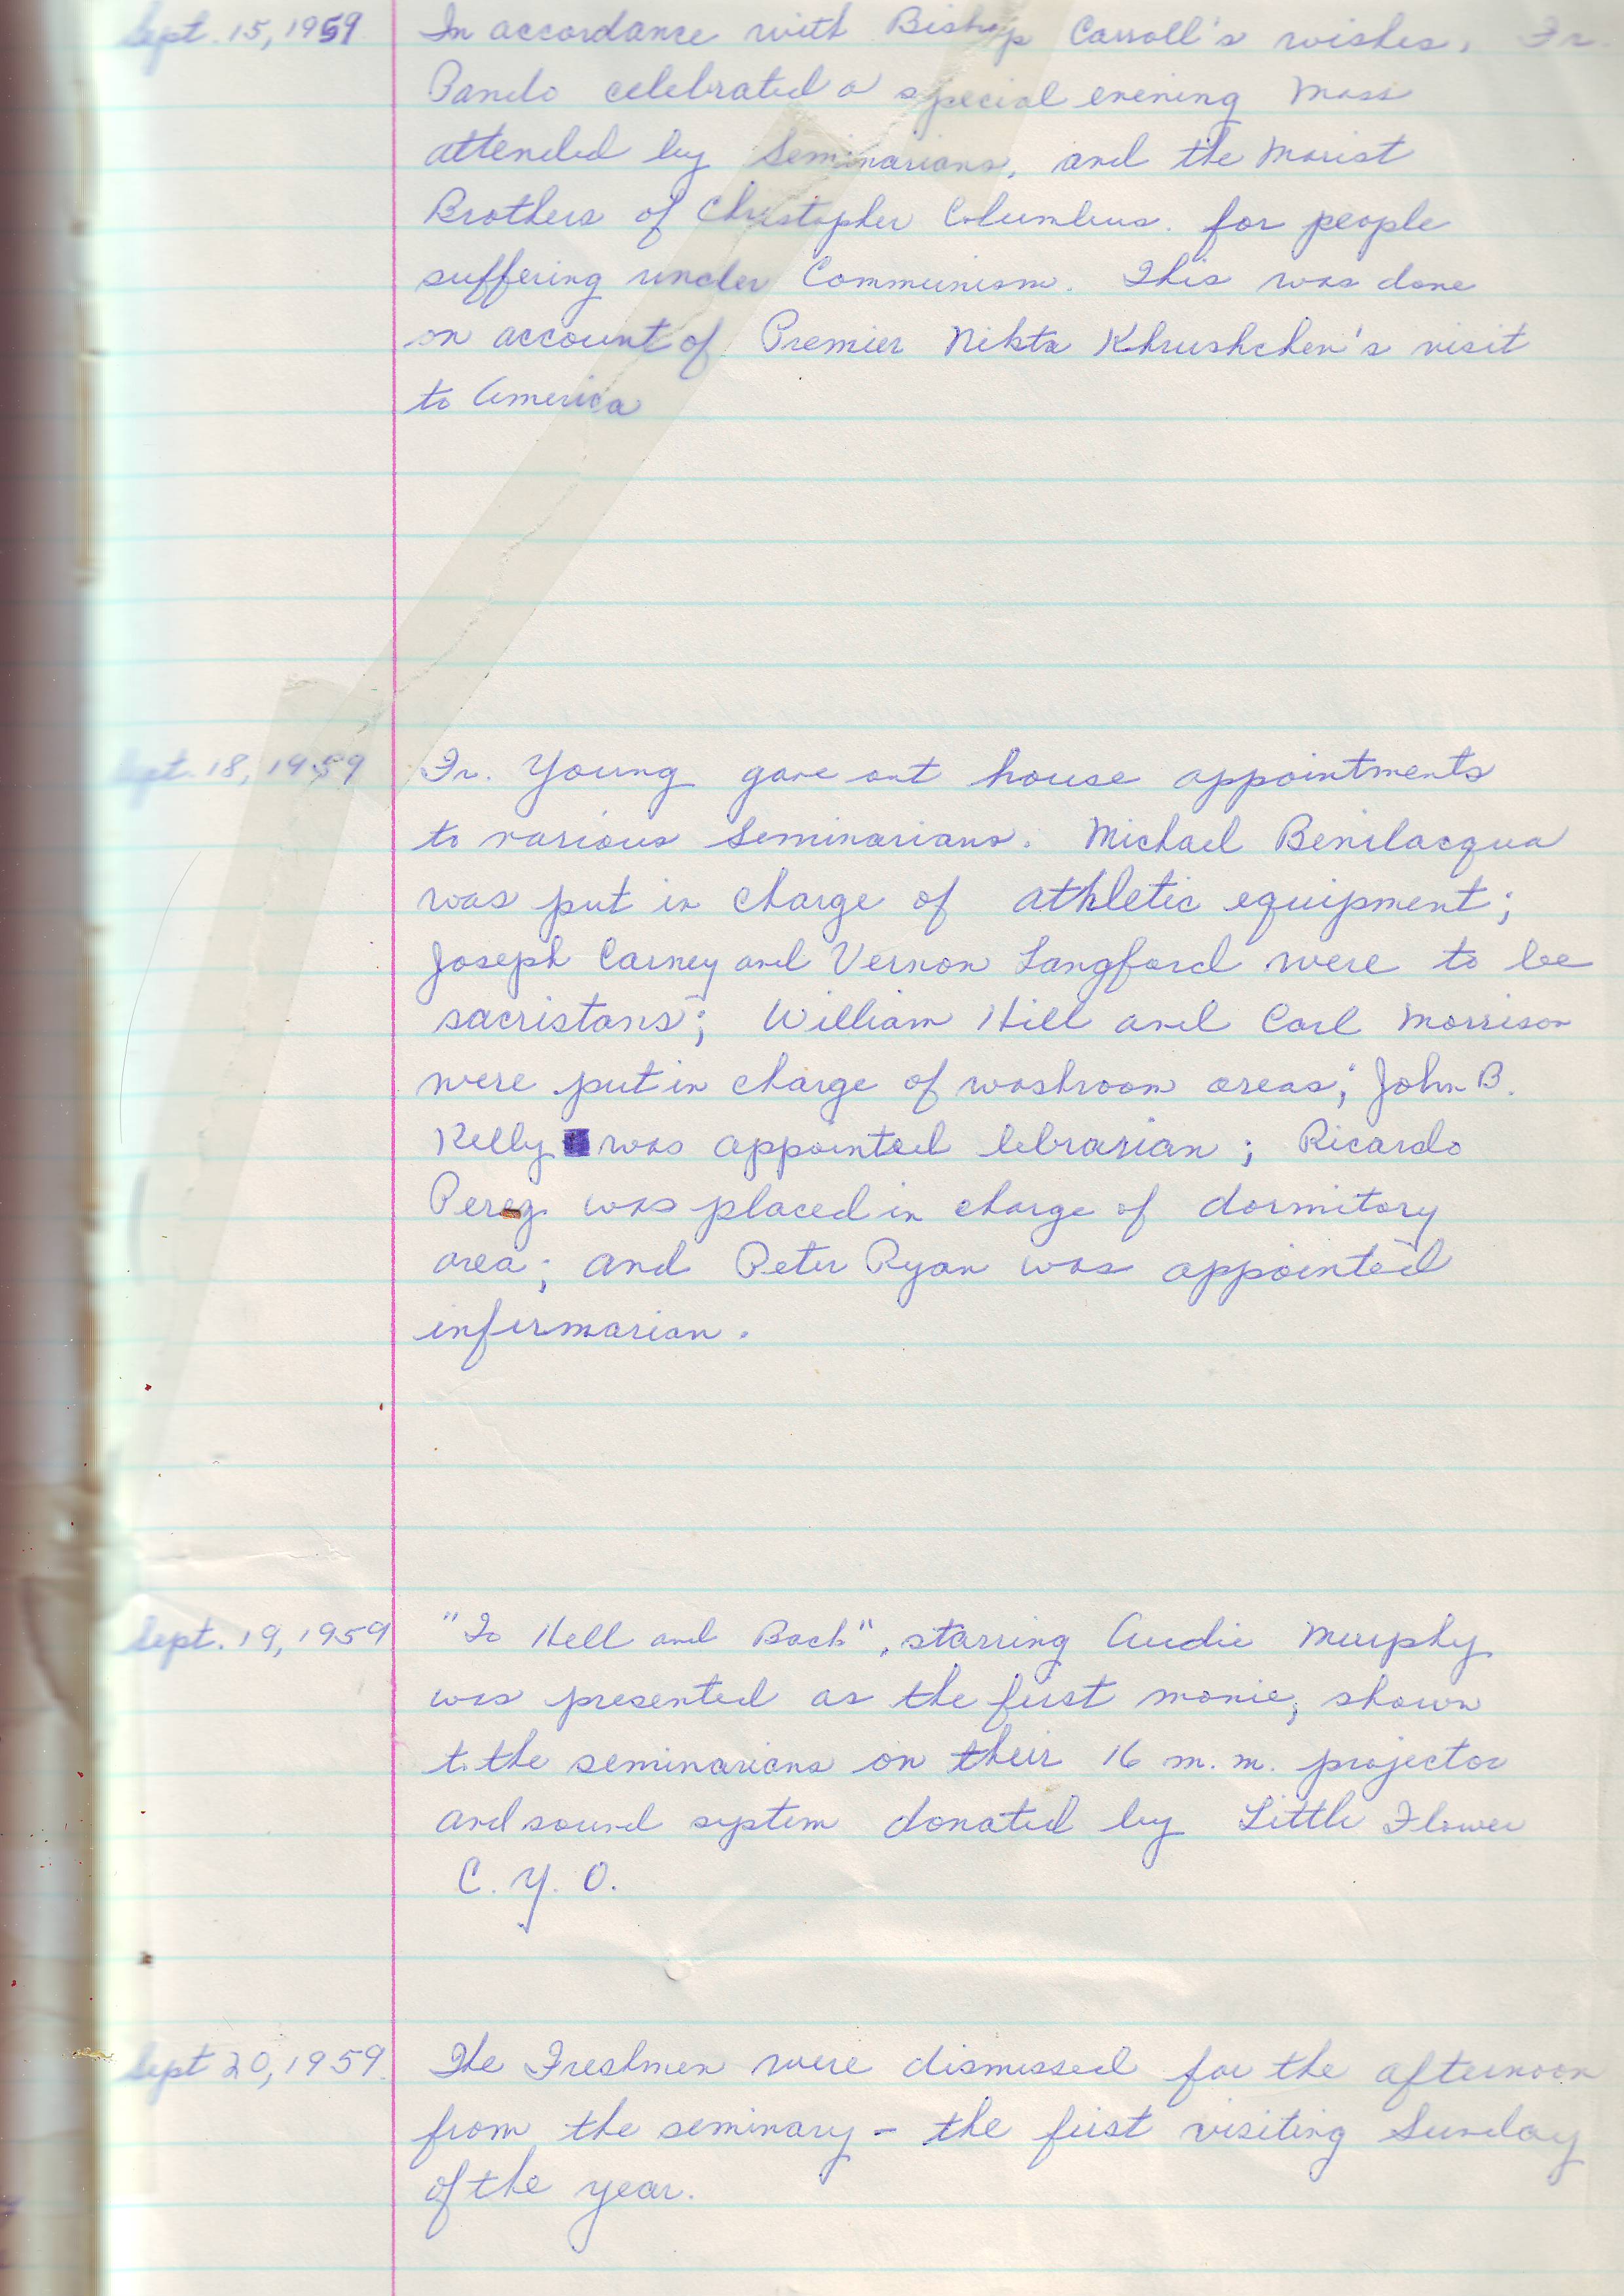 Sept. 15, 1959 In accordance with Bishop Carroll's wishes, Fr.
Pando celebrated a special evening Mass
attended by Seminarians, and the Marist
Brothers of Christopher Columbus. for people
suffering under Communism. This was done
on account of Premier Nikta Khrushchev's visit
to America
Sept. 18, 1959 Fr. Young gave out house appointments
to various Seminarians. Michael Bevilacqua
was put in charge of athletic equipment;
Joseph Carney and Vernon Langford were to be
sacristans; William Hill and Carl Morrison
were put in charge of washroom areas; John B.
Kelly was appointed librarian; Ricardo
Perez was placed in charge of dormitory
area; and Peter Ryan was appointed
infirmarian.
Sept. 19, 1959 "To Hell and Back", starring Audie Murphy
was presented as the first movie, shown
to the seminarians on their 16 m.m. projector
and sound system donated by Little Flower
C. Y. O.
Sept 20, 1959. The Freshmen were dismissed for the afternoon
from the seminary - the first visiting Sunday
of the year.